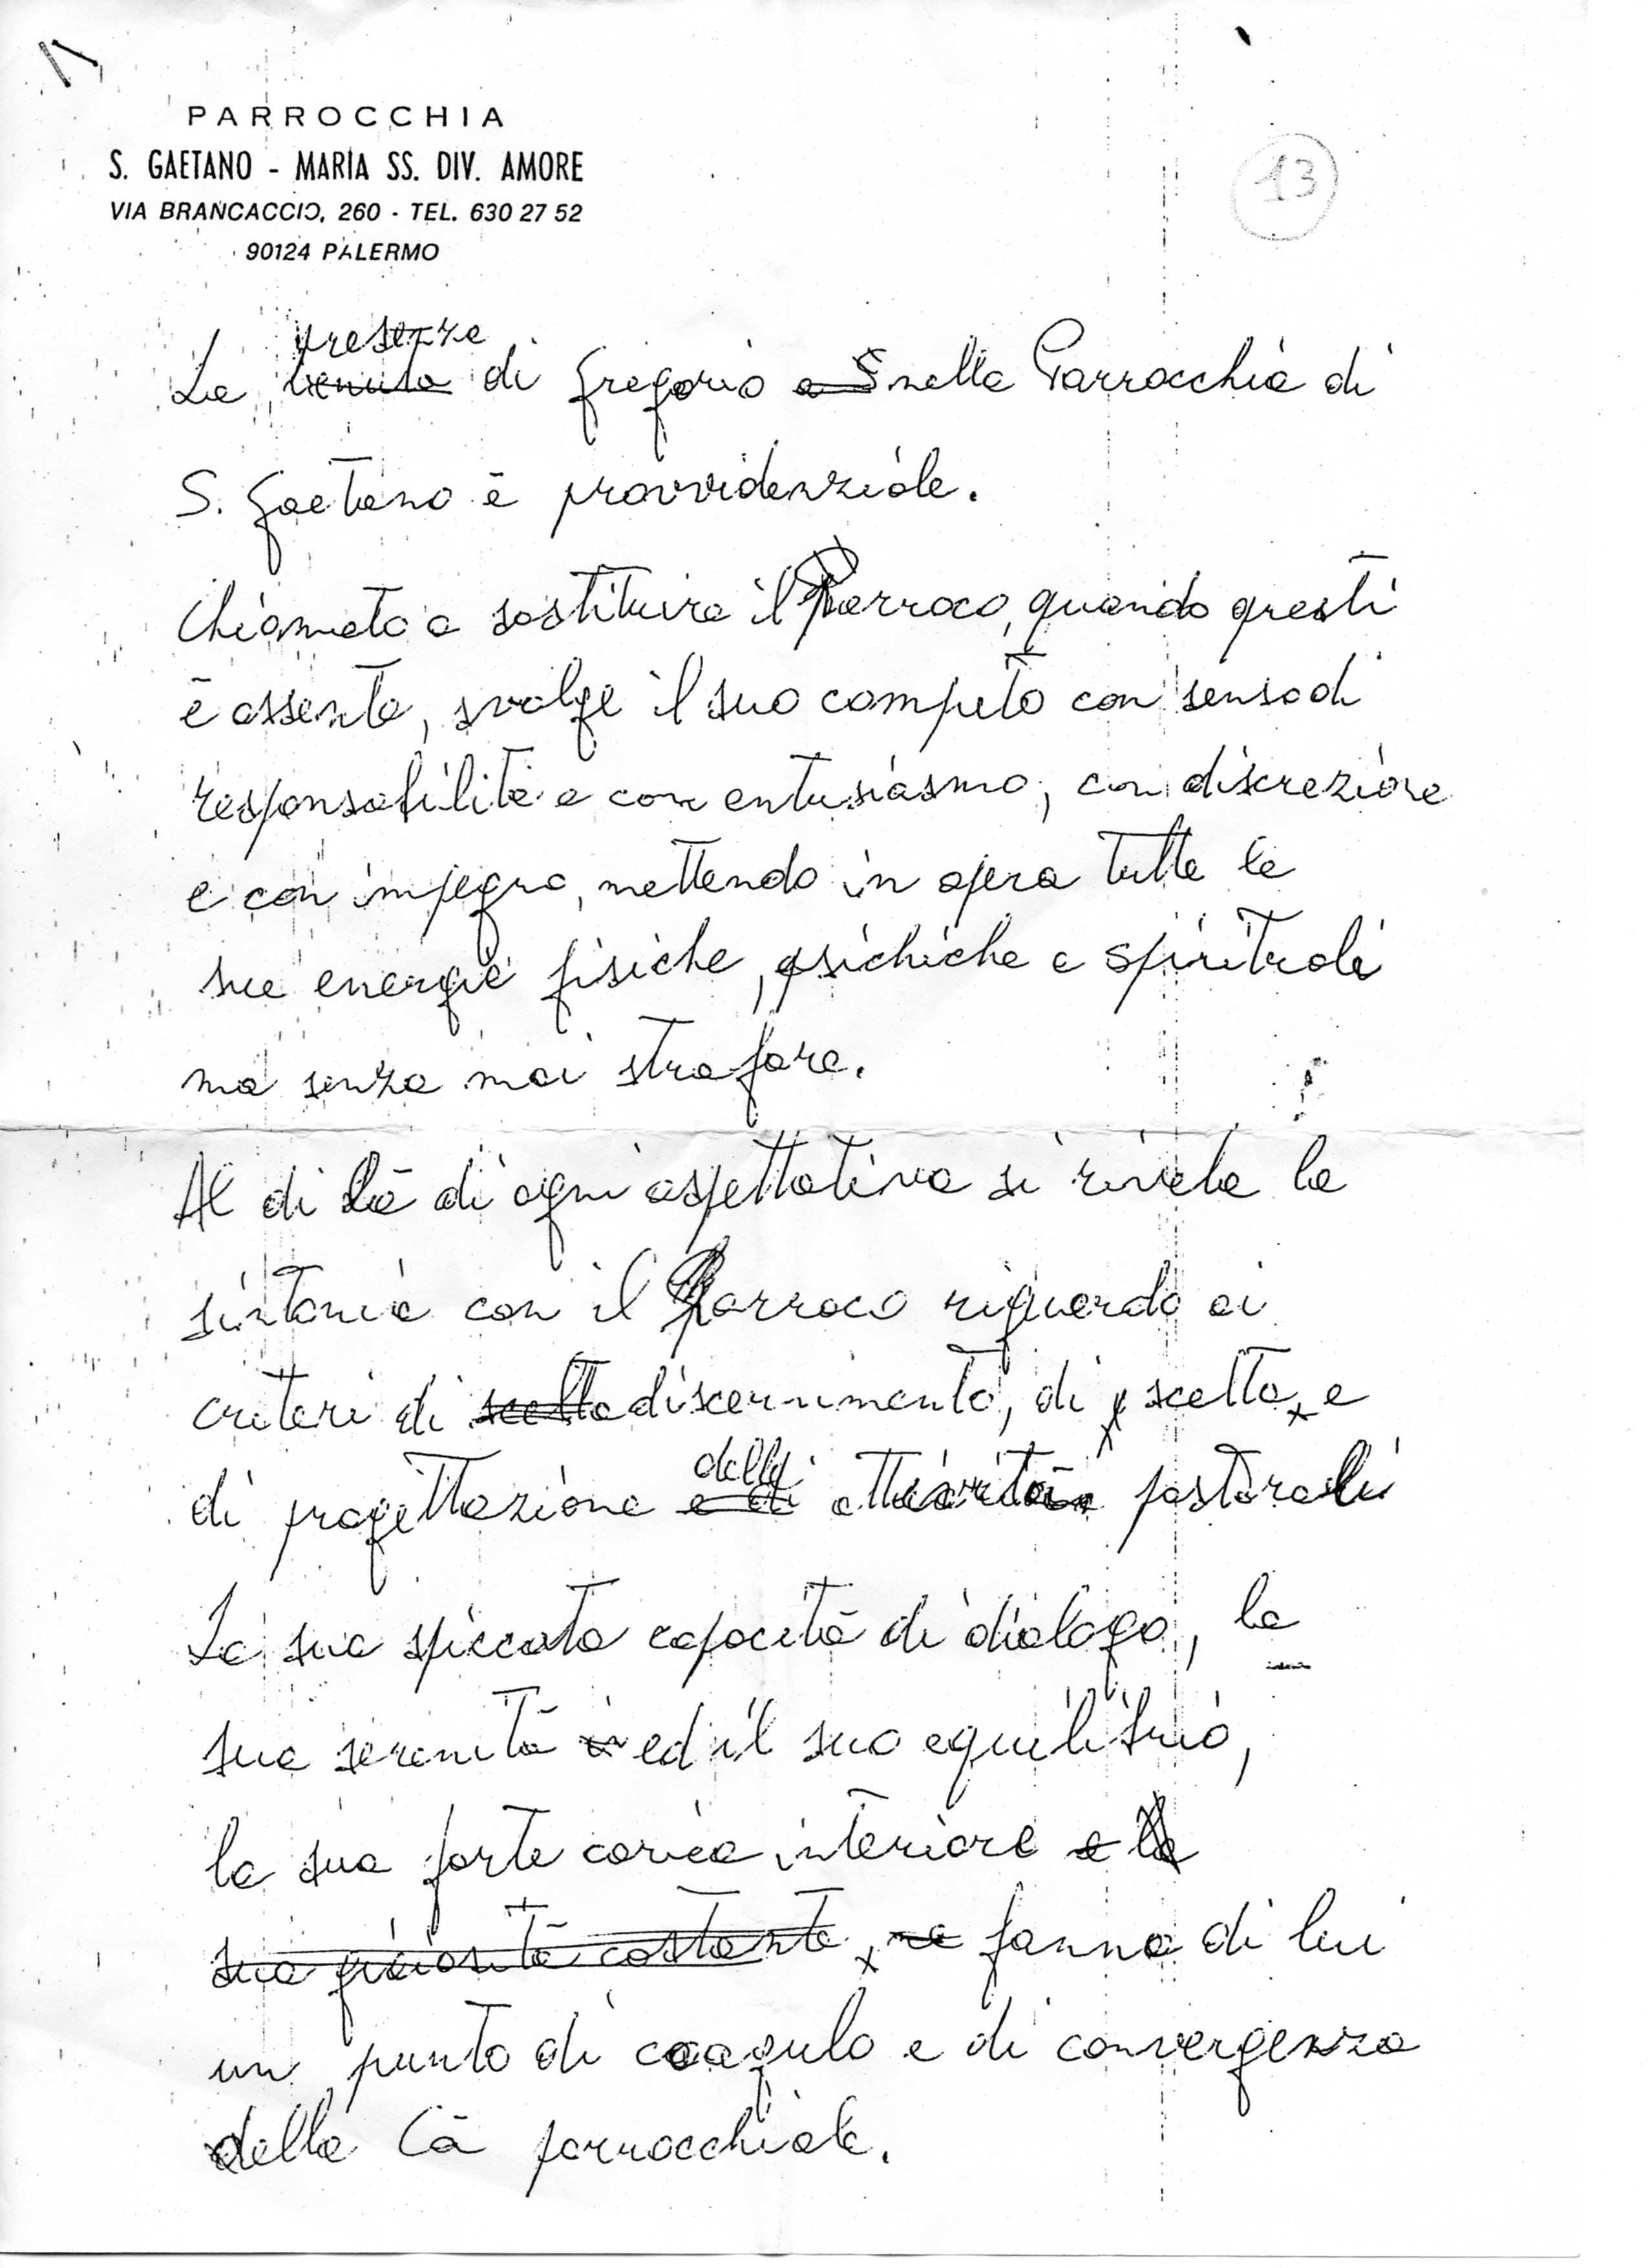 PARROCCHIA
S. GAETANO - MARIA SS. DIV. AMORE
VIA BRANCACCIO, 260 - TEL. 630 27 52
90124 PALERMO
13
presenza
La venuta di Gregorio a S nella Parrocchia di
S. Gaetano è provvidenziale.
Chiamato a sostituire il Parroco, quando questi
è assente, svolge il suo compito con senso di
responsabilità e con entusiasmo, con discrezione
e con impegno, mettendo in opera tutte le
sue energie fisiche, psichiche e spirituali
ma senza mai strafare.
Al di là di ogni aspettativa si rivela la
sintonia con il Parroco riguardo ai
criteri di scelta discernimento, di scelta e
delle
di progettazione e di attività pastorali
La sua spiccata capacità di dialogo, la
sua serenità ed il suo equilibrio,
la sua forte carica interiore e la
sua gioiosità costante, ne fanno di lui
un punto di coagulo e di convergenza
della Cà parrocchiale.